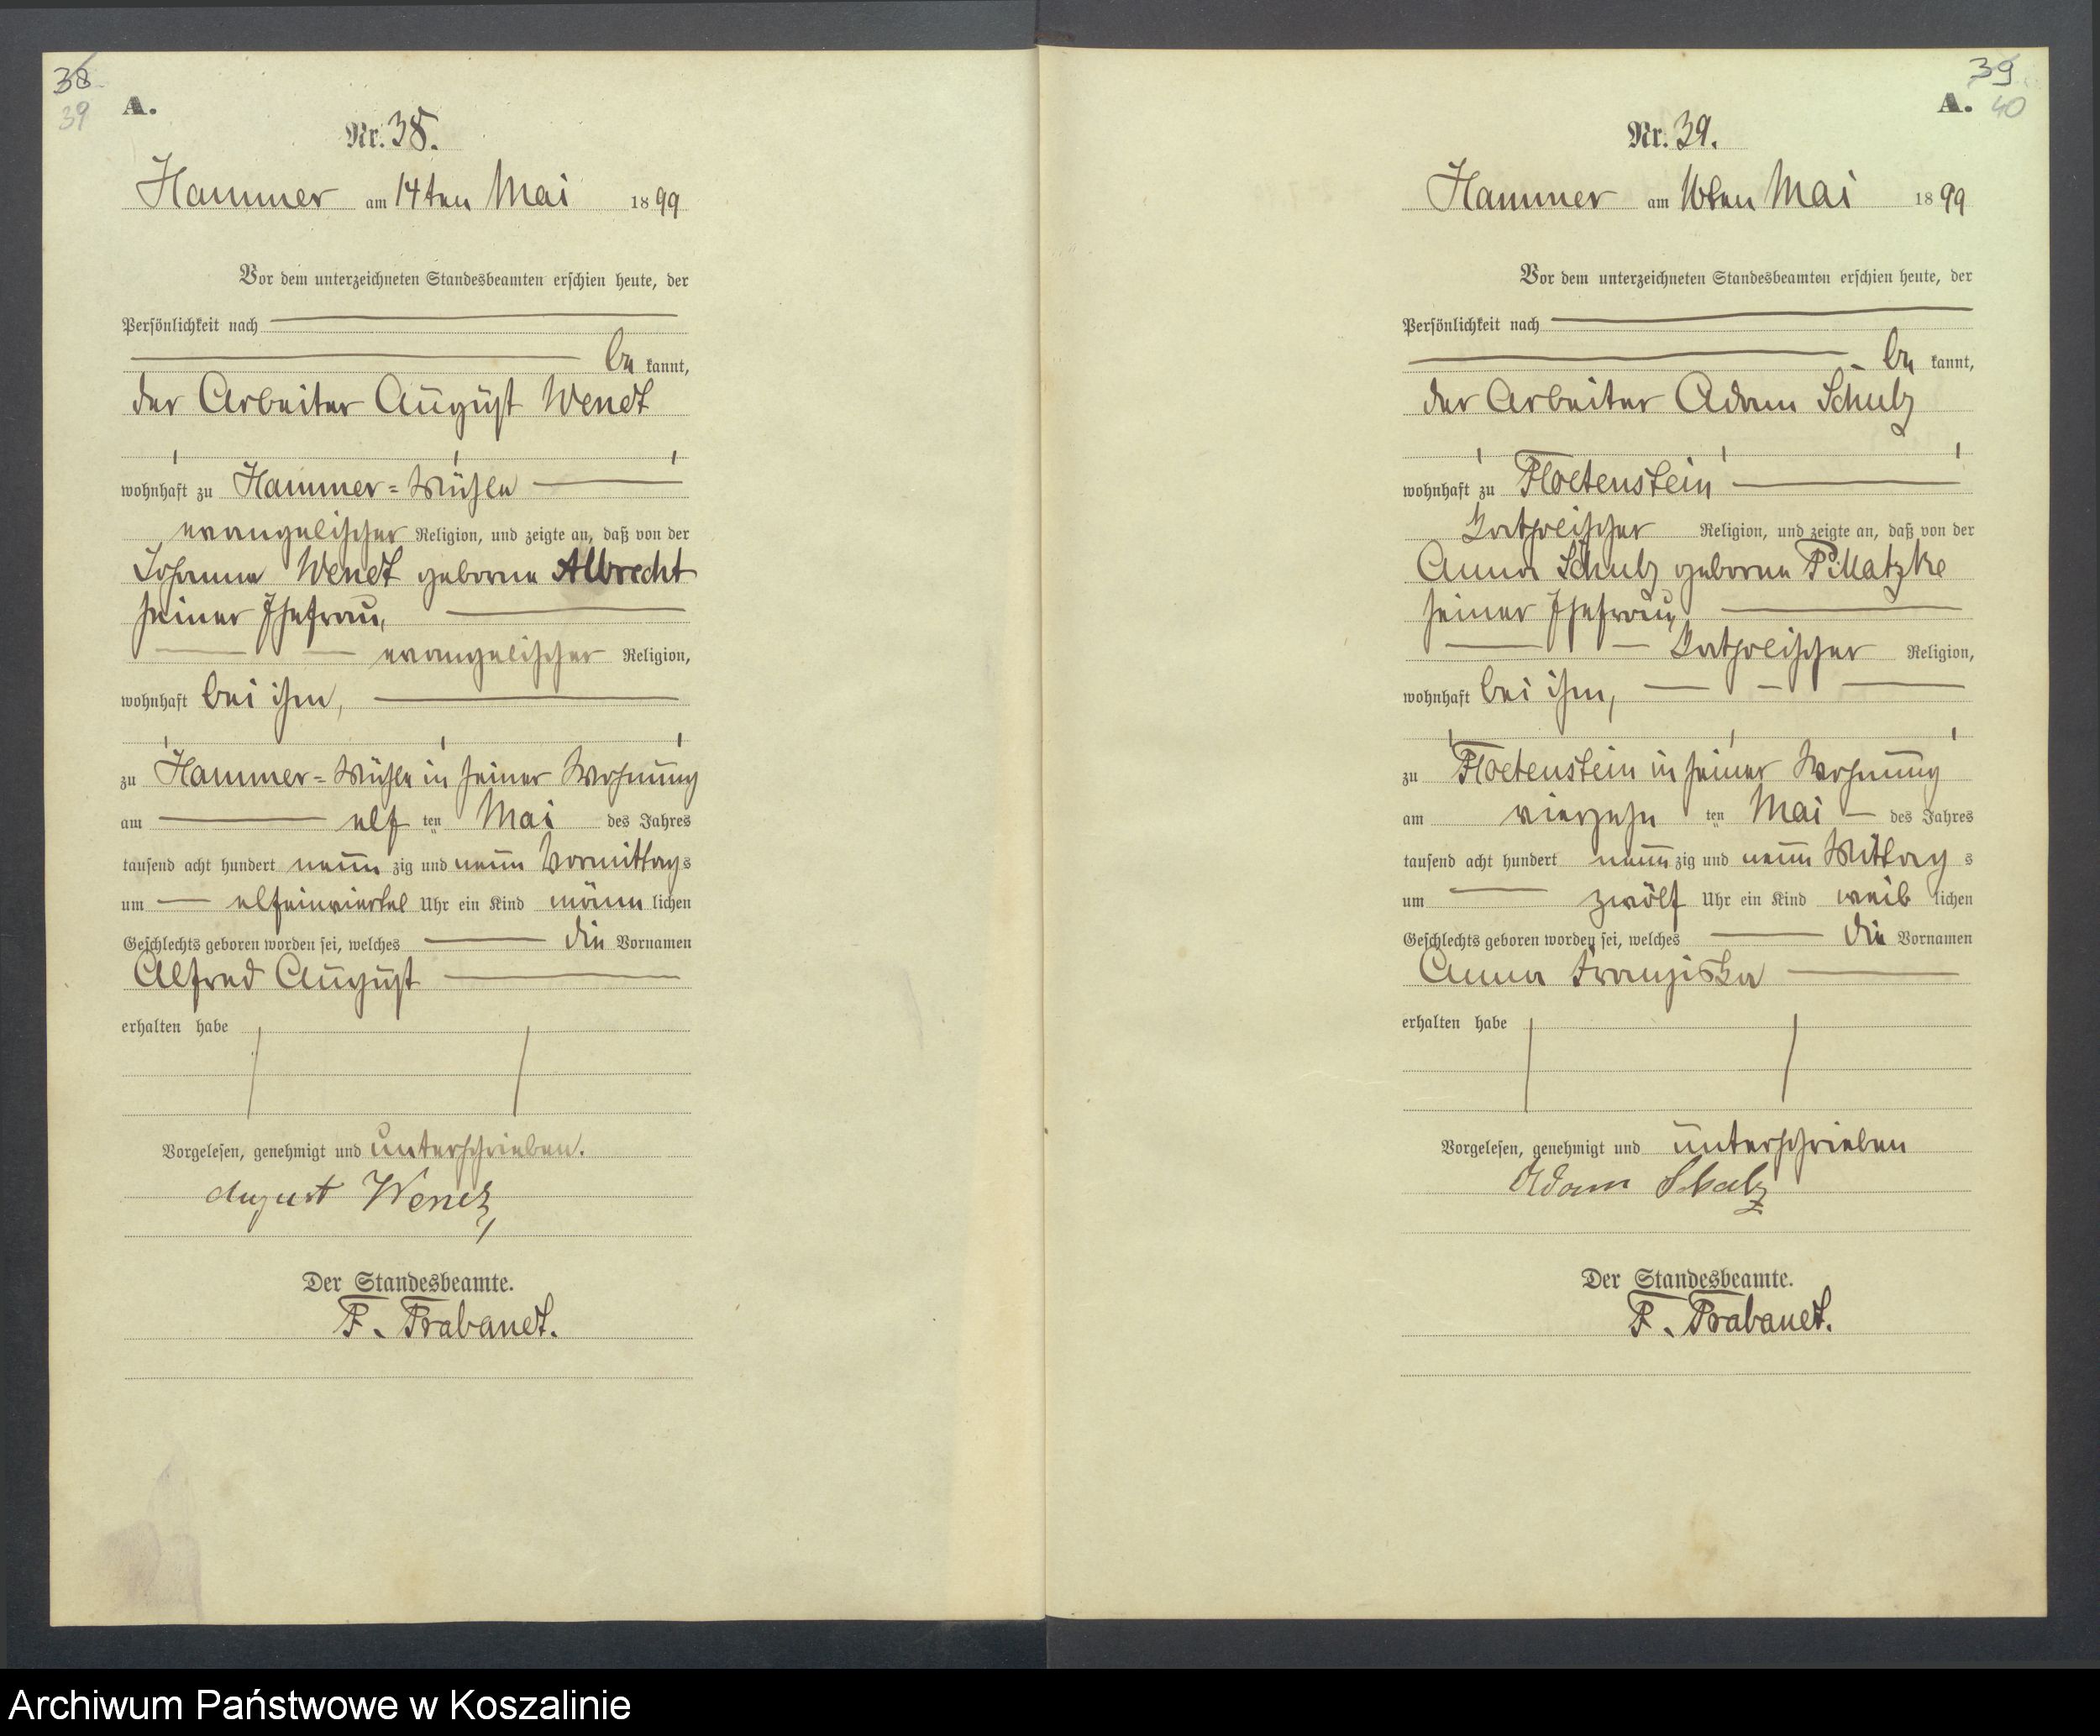 38
39
A.
Nr. 38.
Hammer am 14ten Mai 1899
Vor dem unterzeichneten Standesbeamten erschien heute, der
Persönlichkeit nach
be kannt,
der Arbeiter August Wendt
wohnhaft zu Hammer=Mühle
evangelischer Religion, und zeigte an, daß von der
Johanna Wendt geborne Albrecht
seiner Ehefrau,
evangelischer Religion,
wohnhaft bei ihm,
zu Hammer=Mühle in seiner Wohnung
am elf ten Mai des Jahres
tausend acht hundert neun zig und neun Vormittags
um elfeinviertel Uhr ein Kind männ lichen
Geschlechts geboren worden sei, welches die Vornamen
Alfred August
erhalten habe
Vorgelesen, genehmigt und unterschrieben.
August Wendt
Der Standesbeamte.
F. Prabandt.
39
A. 40
Nr. 39.
Hammer am 16ten Mai 1899
Vor dem unterzeichneten Standesbeamten erschien heute, der
Persönlichkeit nach
be kannt,
der Arbeiter Adam Schulz
wohnhaft zu Floetenstein
katholischer Religion, und zeigte an, daß von der
Anna Schulz geborne Pillatzke
seiner Ehefrau,
katholischer Religion,
wohnhaft bei ihm,
zu Floetenstein in seiner Wohnung
am vierzehn ten Mai des Jahres
tausend acht hundert neun zig und neun Mittag s
um zwölf Uhr ein Kind weib lichen
Geschlechts geboren worden sei, welches die Vornamen
Anna Franziska
erhalten habe
Vorgelesen, genehmigt und unterschrieben
Adam Schulz
Der Standesbeamte.
F. Prabandt.
Archiwum Państwowe w Koszalinie